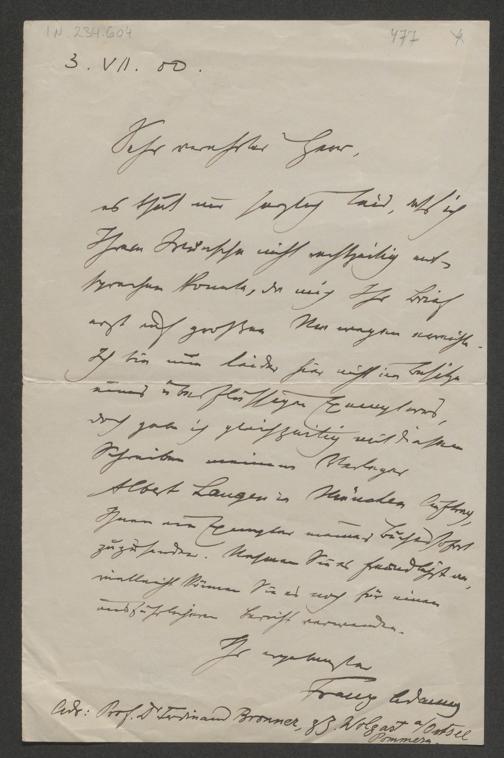 IN 234.604 477
3. VII. 00.
Sehr verehrter Herr,
es thut mir herzlich leid, daß ich
Ihrem Wunsche nicht rechtzeitig ent-
sprechen konnte, da mich Ihr Brief
erst auf großen Umwegen erreichte.
Ich bin nun leider hier nicht im Besitze
eines überflüssigen Exemplares,
doch gebe ich gleichzeitig mit diesem
Schreiben meinem Verleger
Albert Langen in München Auftrag,
Ihnen ein Exemplar meines
zuzusenden. Nehmen Sie es freundlichst an,
vielleicht können Sie es noch für einen
ausführlicheren Bericht verwenden.
Ihr ergebenster
Franz Adamus
Adr: Prof. Dr Ferdinand Bronner, z. Z. Wolgast a/Ostsee
Pommern.